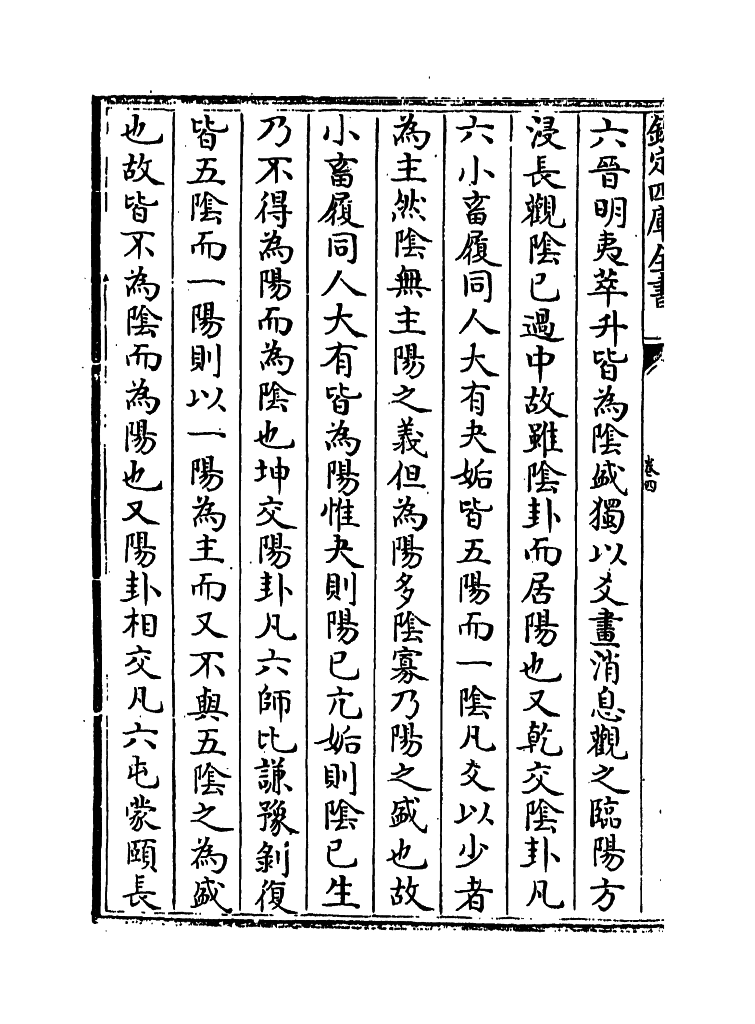 欽定四庫全書
卷四
六晉明夷萃升皆為陰盛獨以爻畫消息觀之臨陽方
浸長觀陰已過中故雖陰卦而居陽也又乾交陰卦凡
六小畜履同人大有夬姤皆五陽而一陰凡爻以少者
為主然陰無主陽之義但為陽多陰寡乃陽之盛也故
小畜履同人大有皆為陽惟夬則陽已亢姤則陰已生
乃不得為陽而為陰也坤交陽卦凡六師比謙豫剝復
皆五陰而一陽則以一陽為主而又不與五陰之為盛
也故皆不為陰而為陽也又陽卦相交凡六屯蒙頤長